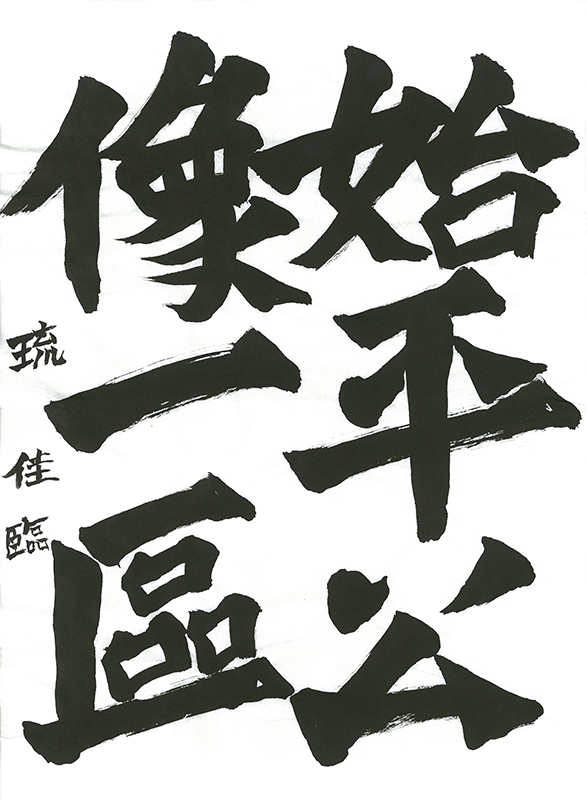 始平公
像一區
琉佳臨